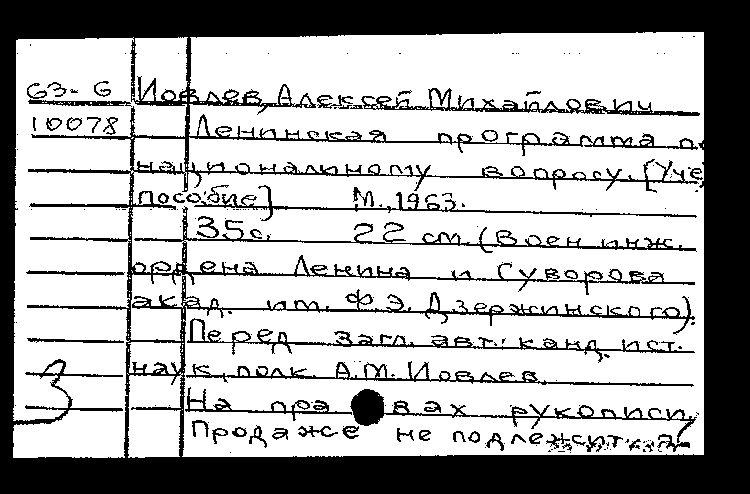 63-6 Иовлев, Алексей Михайлович
10078 Ленинская программа по
национальному вопросу. [Уче
пособие] М., 1963.
35 с. 22 см. (Воен инж.
ордена Ленина и Суворова
акад. им. Ф.Э. Дзержинского).
Перед загл. авт.: канд. ист.
наук, полк. А.М. Иовлев.
З
На правах рукописи.
Продаже не подлежит